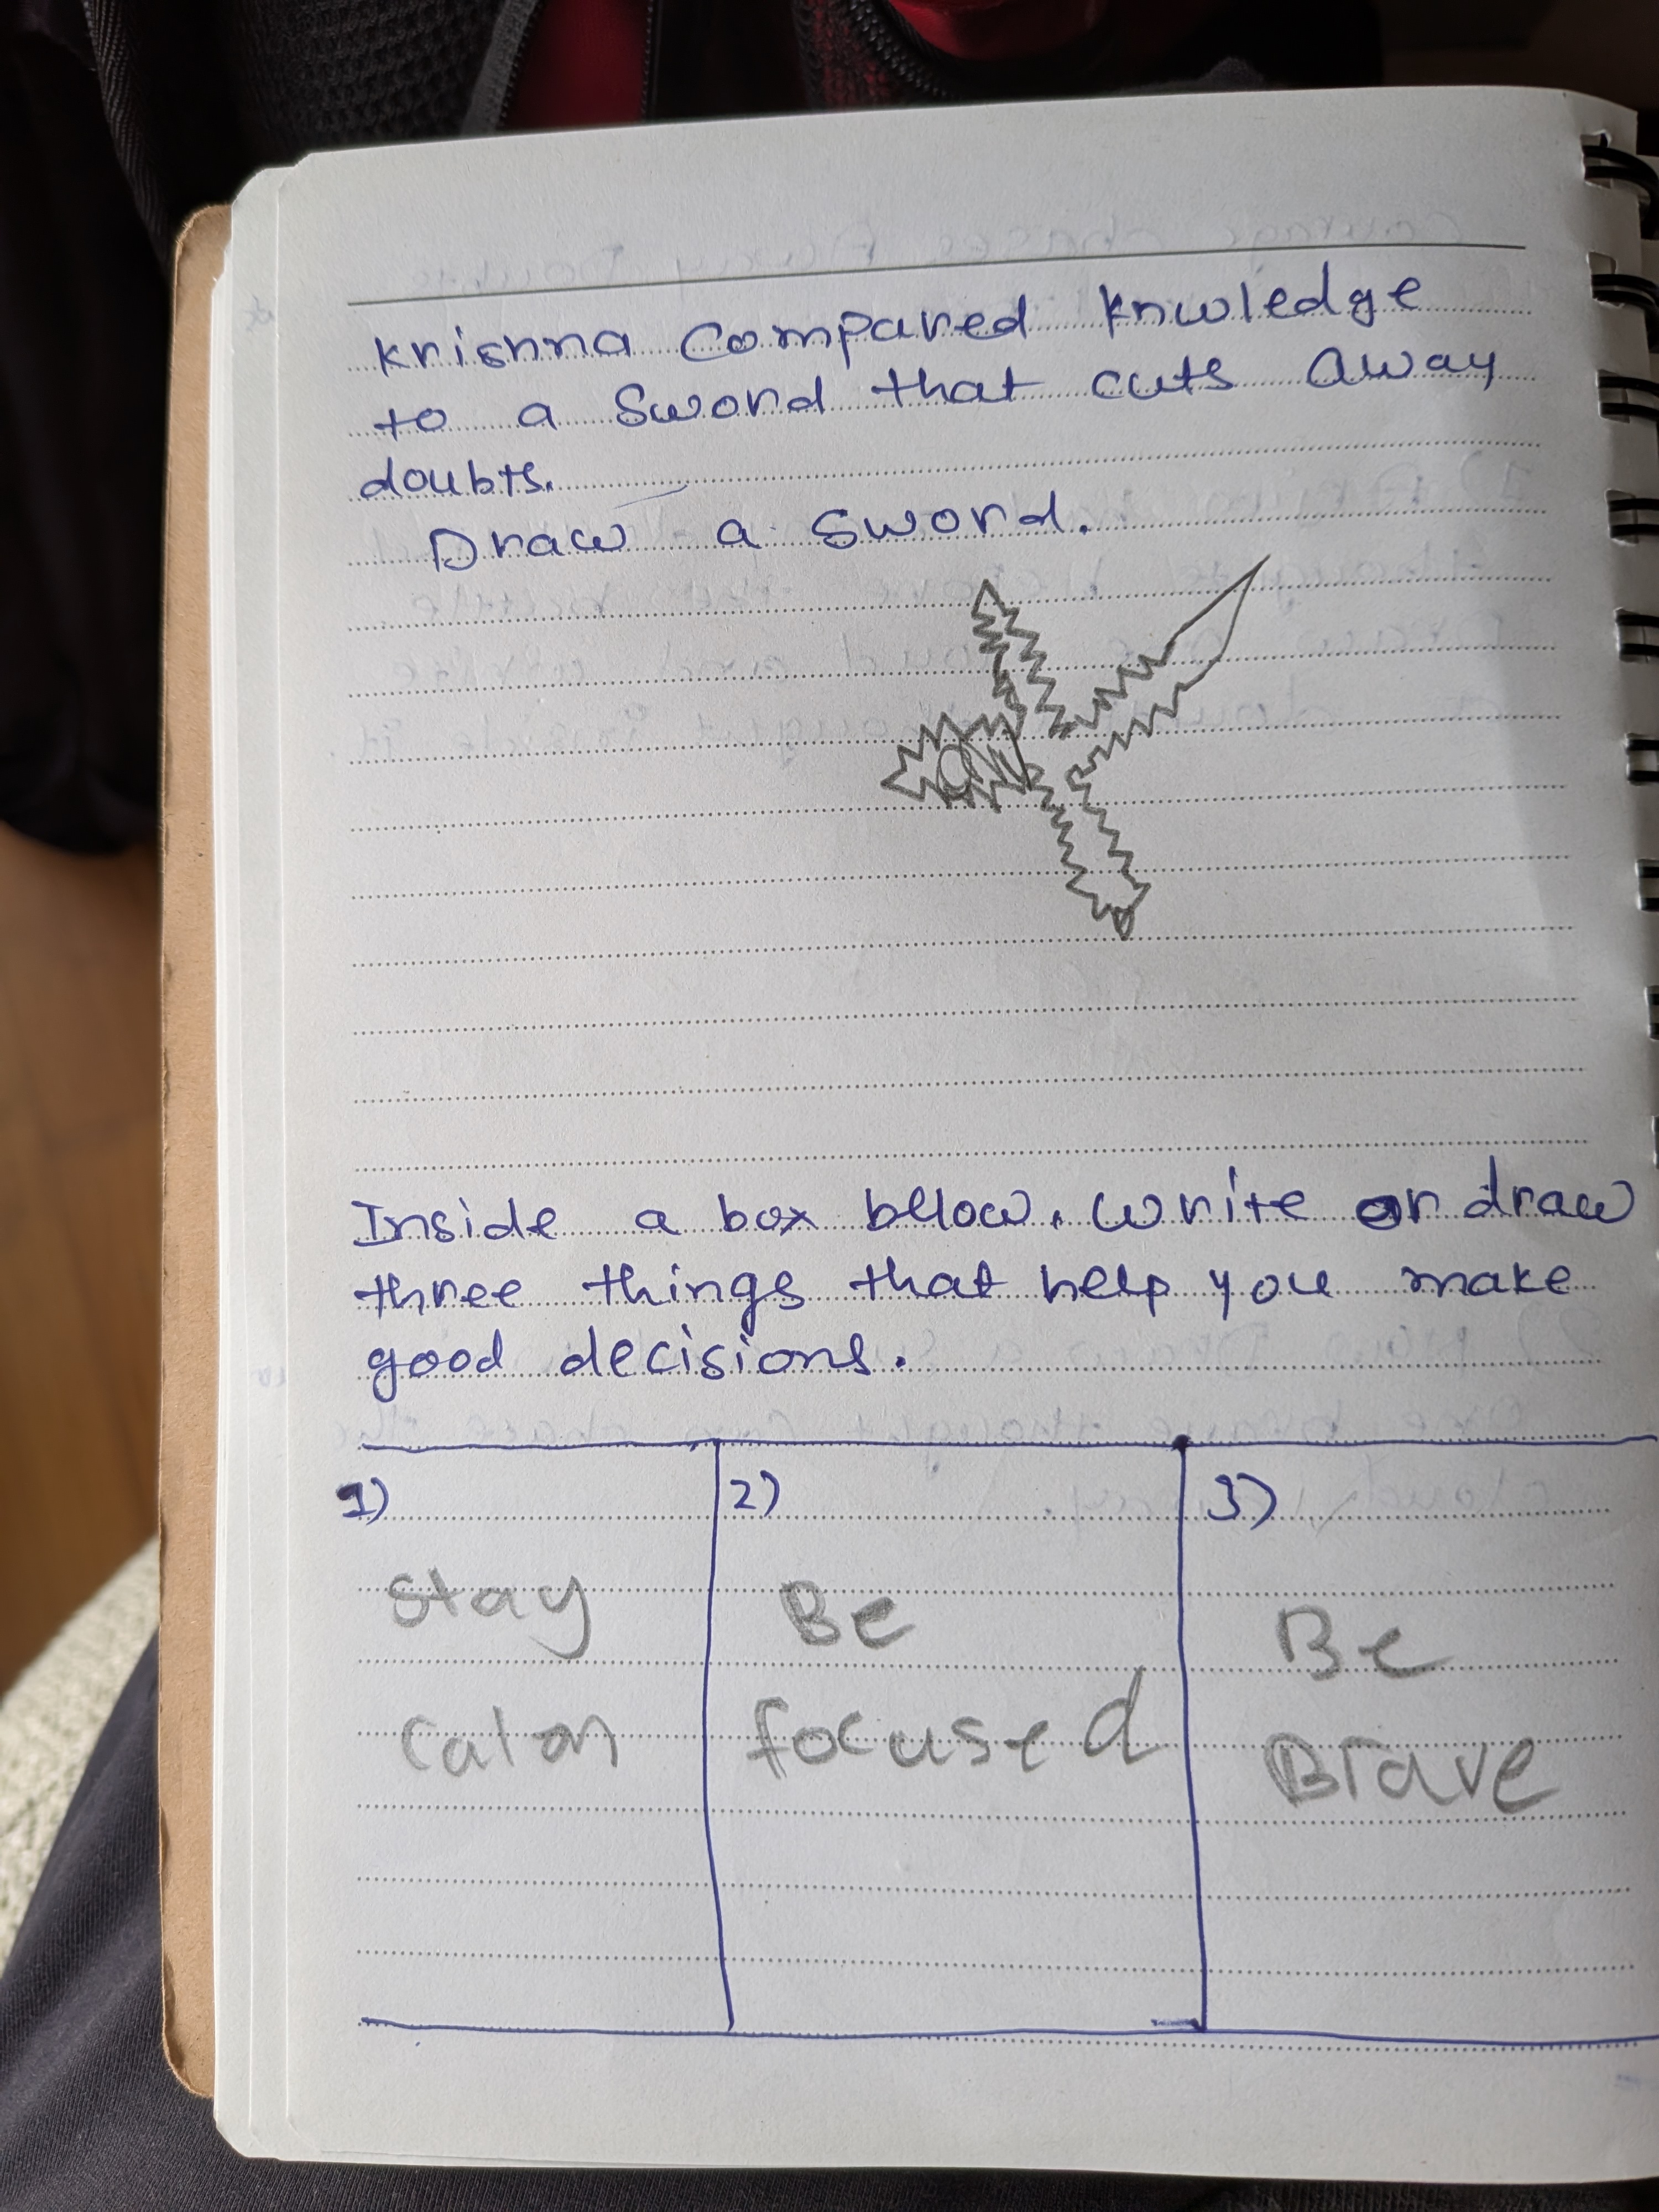 Krishna Compared Knwledge
to a Sword that cuts Away
doubts.
Draw a Sword.
Inside a box bellow. Write or draw
three things that help you make
good decisions.
1)
Stay
calm
2)
Be
focused
3)
Be
Brave